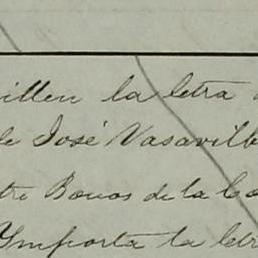 la letra
de José Vasavilb
tre Bonos de la Co
Ymporta la letr